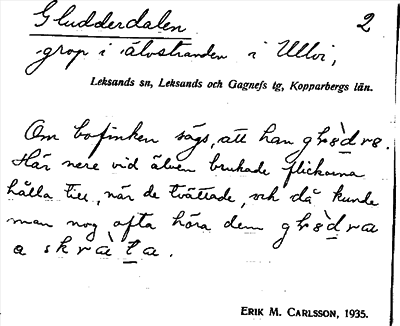 Gludderdalen 2
grop i älvstranden i Ullvi,
Leksands sn, Leksands och Gagnefs tg, Kopparbergs län.
Om bofinken sägs, att han
Här nere vid älven brukade flickorna
hålla till, när de tvättade, och då kunde
man nog ofta höra dem
a
ERIK M. CARLSSON, 1935.